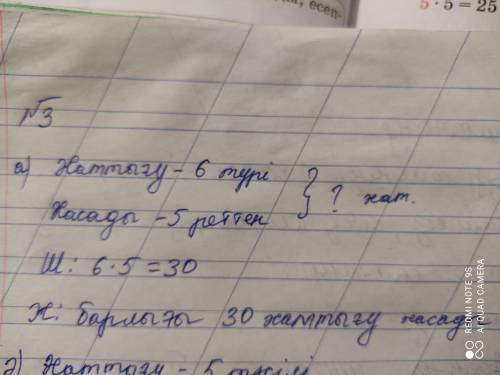 есеп-
5 · 5 = 25
№3
а) Жаттығу - 6 түрі
Жасады - 5 реттен } ? жат.
Ш: 6·5=30
Ж: барлығы 30 жаттығу жасады
Жаттығу - 5
REDMI NOTE 9S
AI QUAD CAMERA